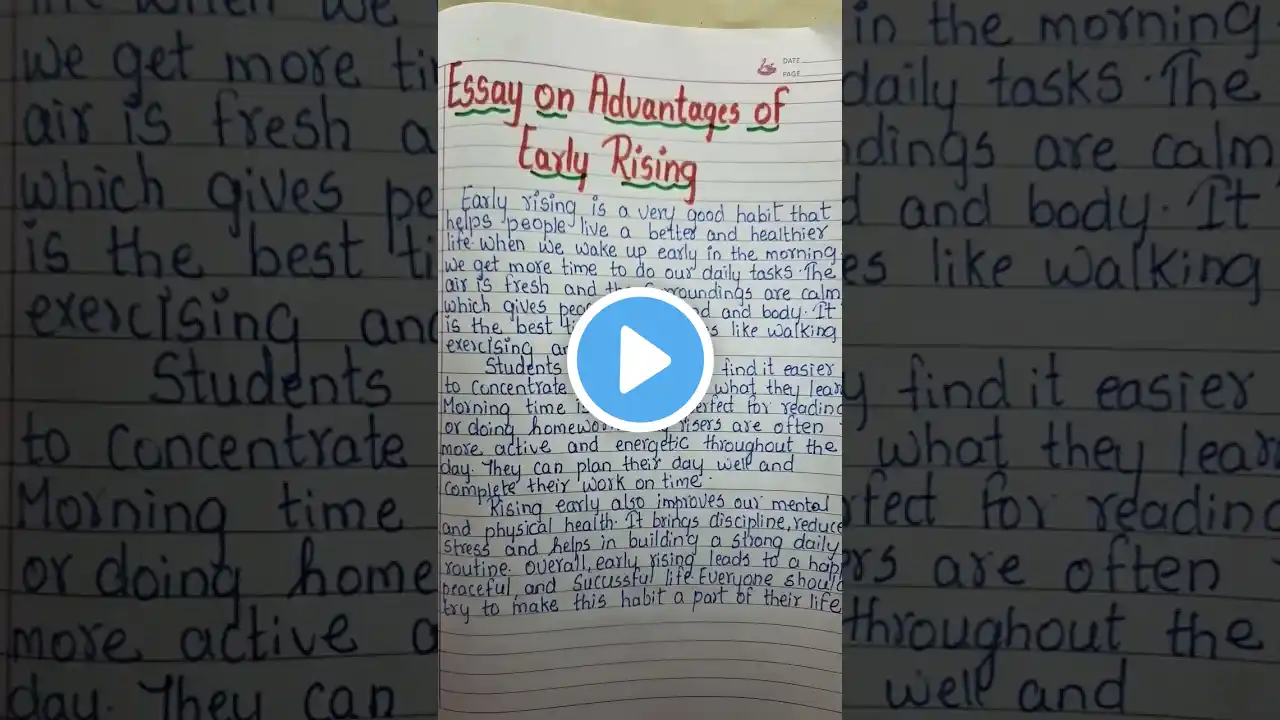 DATE
PAGE
Essay on Advantages of
Early Rising
Early rising is a very good habit that
helps people live a better and healthier
life. when we wake up early in the morning
we get more time to do our daily tasks. The
air is fresh and the surroundings are calm
which gives and body. It
is the best like walking
exercising
Students find it easier
to concentrate what they
Morning time for reading
or doing are often
more active and energetic throughout the
day. They can plan their day well and
complete their work on time.
Rising early also improves our mental
and physical health. It brings discipline, reduce
stress and helps in building a strong daily
routine. overall, early rising leads to a
peaceful, and Sucussful life. Everyone should
try to make this habit a part of their life